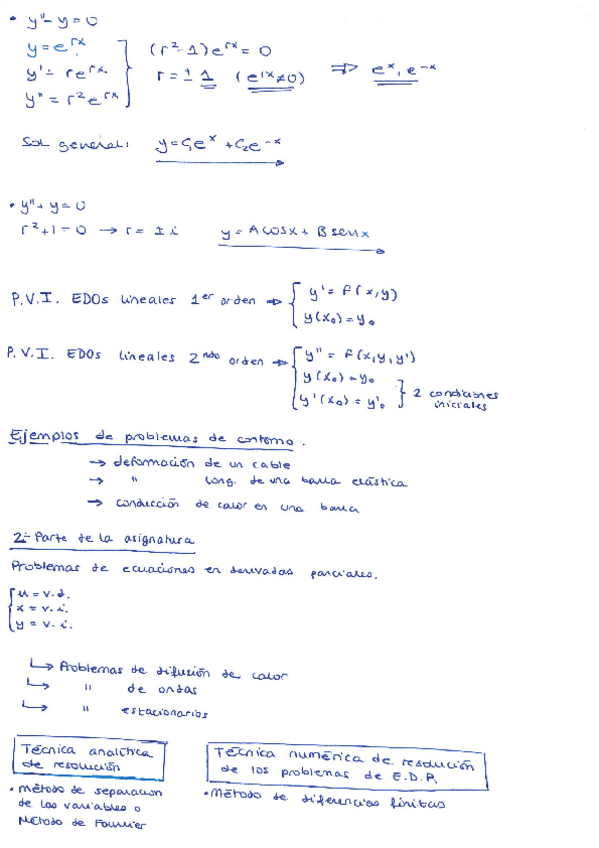 • y'' - y = 0
y = e^{rx}
y' = re^{rx}
y'' = r²e^{rx}
(r² - 1) e^{rx} = 0
r = ± 1 (e^{rx} ≠ 0) ⇒ e^x, e^{-x}
Sol general: y = C₁e^x + C₂e^{-x}
• y'' + y = 0
r² + 1 = 0 → r = ± i y = A cosx + B senx
P.V.I. EDOs lineales 1er orden ⇒ { y' = f(x,y)
y(x₀) = y₀
P.V.I. EDOs lineales 2ndo orden ⇒ { y'' = f(x,y,y')
y(x₀) = y₀
y'(x₀) = y'₀ } 2 condiciones iniciales
Ejemplos de problemas de contorno.
→ deformación de un cable
→ " long. de una barra elástica
→ conducción de calor en una barra
2ª- Parte de la asignatura
Problemas de ecuaciones en derivadas parciales.
{ u = v.d.
x = v.i.
y = v.i.
↳ Problemas de difusión de calor
↳ " de ondas
↳ " estacionarios
Técnica analítica
de resolución
• método de separación
de las variables o
Método de Fourier
Técnica numérica de resolución
de los problemas de E.D.P.
• Método de diferencias finitas